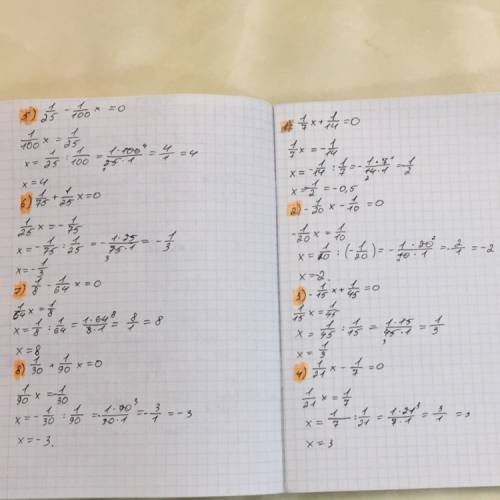 5) 1/25 - 1/100 x = 0
1/100 x = 1/25
x = 1/25 : 1/100 = 1·100⁴/25·1 = 4/1 = 4
x = 4
6) 1/75 + 1/25 x = 0
1/25 x = - 1/75
x = - 1/75 : 1/25 = - 1·25/75·1 = - 1/3
3
x = - 1/3
7) 1/8 - 1/64 x = 0
1/64 x = 1/8
x = 1/8 : 1/64 = 1·64⁸/8·1 = 8/1 = 8
x = 8
8) 1/30 + 1/90 x = 0
1/90 x = 1/30
x = - 1/30 : 1/90 = 1·90³/30·1 = - 3/1 = -3
x = -3.
1/7 x + 1/14 = 0
1/7 x = - 1/14
x = - 1/14 : 1/7 = - 1·7/14·1 = 1/2
2
x = 1/2 = -0,5
2) - 1/20 x - 1/10 = 0
- 1/20 x = 1/10
x = 1/10 : (- 1/20) = - 1·20²/10·1 = - 2/1 = -2
x = 2
3) - 1/15 x + 1/45 = 0
1/15 x = 1/45
x = 1/45 : 1/15 = 1·15/45·1 = 1/3
3
x = 1/3
4) 1/21 x - 1/7 = 0
1/21 x = 1/7
x = 1/7 : 1/21 = 1·21³/7·1 = 3/1 =
x = 3